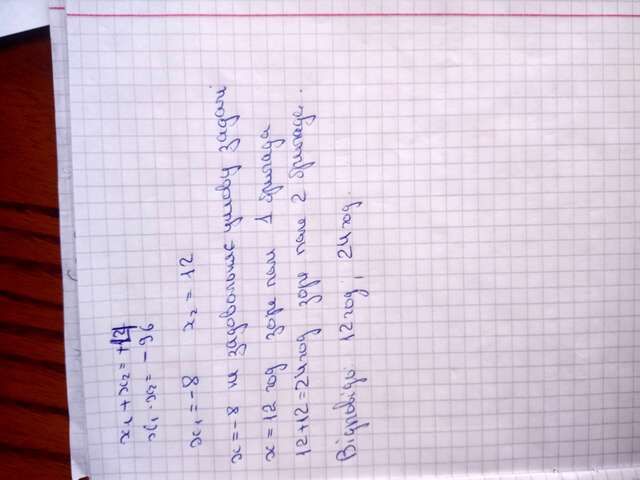 x₁ + x₂ = +4
x₁ · x₂ = -96
x₁ = -8 x₂ = 12
x = -8 не задовольняє умову задачі
x = 12 год зоре поле 1 бригада
12+12=24год зоре поле 2 бригада.
Відповідь: 12год; 24год.